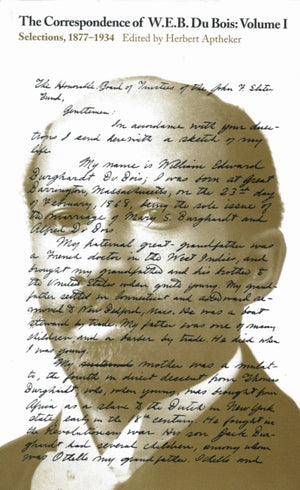 The Correspondence of W.E.B. Du Bois: Volume I
Selections, 1877–1934 Edited by Herbert Aptheker
The Honorable Board of Trustees of the John F. Slater
Fund,
Gentlemen:
In accordance with your direc-
tions I send herewith a sketch of my
life.
My name is William Edward
Burghardt Du Bois; I was born at Great
Barrington, Massachusetts, on the 23rd day
of February, 1868, being the sole issue of
the marriage of Mary S. Burghardt and
Alfred Du Bois
My paternal great-grandfather was
a French doctor in the West Indies, and
brought my grandfather and his brother to
the United States when quite young. My grand-
father settled in Connecticut and afterward
moved to New Bedford, Mass. He was a boat
steward by trade. My father was one of many
children and a barber by trade. He died when
I was young.
My mother was a mulat-
to, the fourth in direct descent from Thomas
Burghardt who, when young, was brought from
Africa as a slave to the Dutch in New York
state early in the 18th century. He fought in
the Revolutionary war. His son Jack Bur-
ghardt had several children, among whom
was Othello my grandfather. Othello and